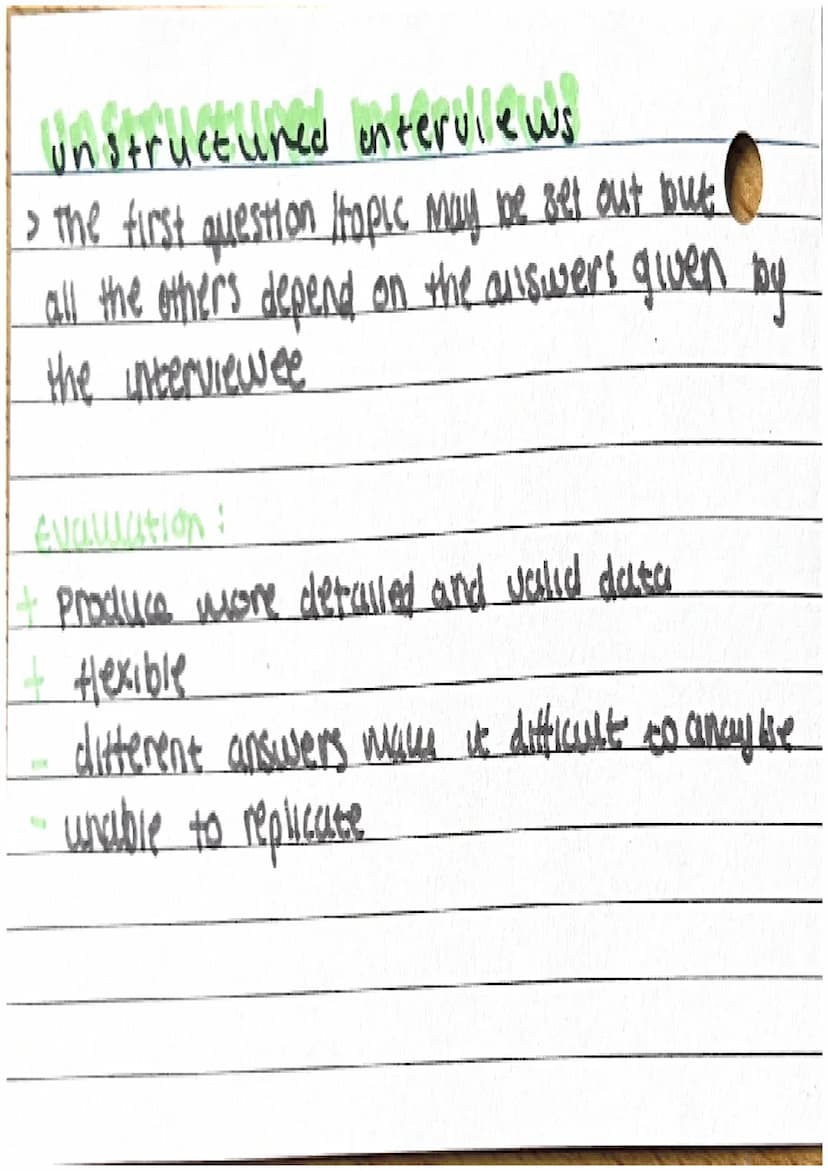 unstructured interviews
> The first question /topic may be set out but
all the others depend on the answers given by
the interviewee
Evaluation:
+ Produce more detailed and valid data
+ flexible
- different answers make it difficult to analyse
- unable to replicate